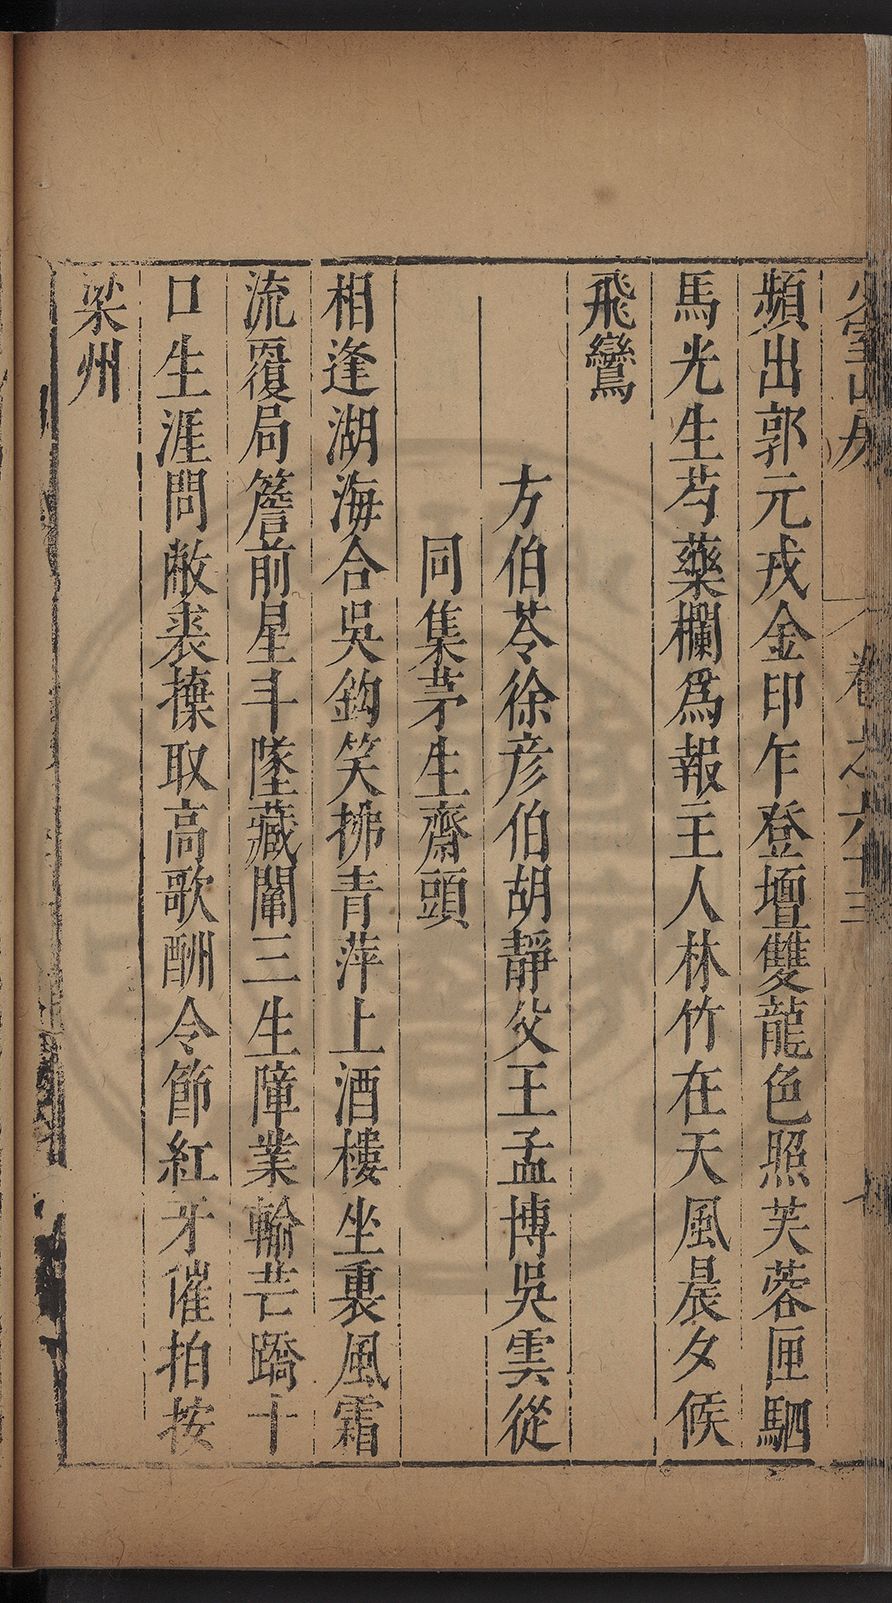 少室山房 卷之六十三
頻出郭元戎金印乍登壇雙龍色照芙蓉匣駟
馬光生芍藥欄爲報主人林竹在天風晨夕候
飛鸞
方伯苓徐彦伯胡靜父王孟博吳雲從
同集茅生齋頭
相逢湖海合吳鈎笑拂青萍上酒樓坐裏風霜
流覆局簷前星斗墜藏鬮三生障業輸芒蹻十
口生涯問敝裘㨿取高歌酬令節紅牙催拍按
梁州